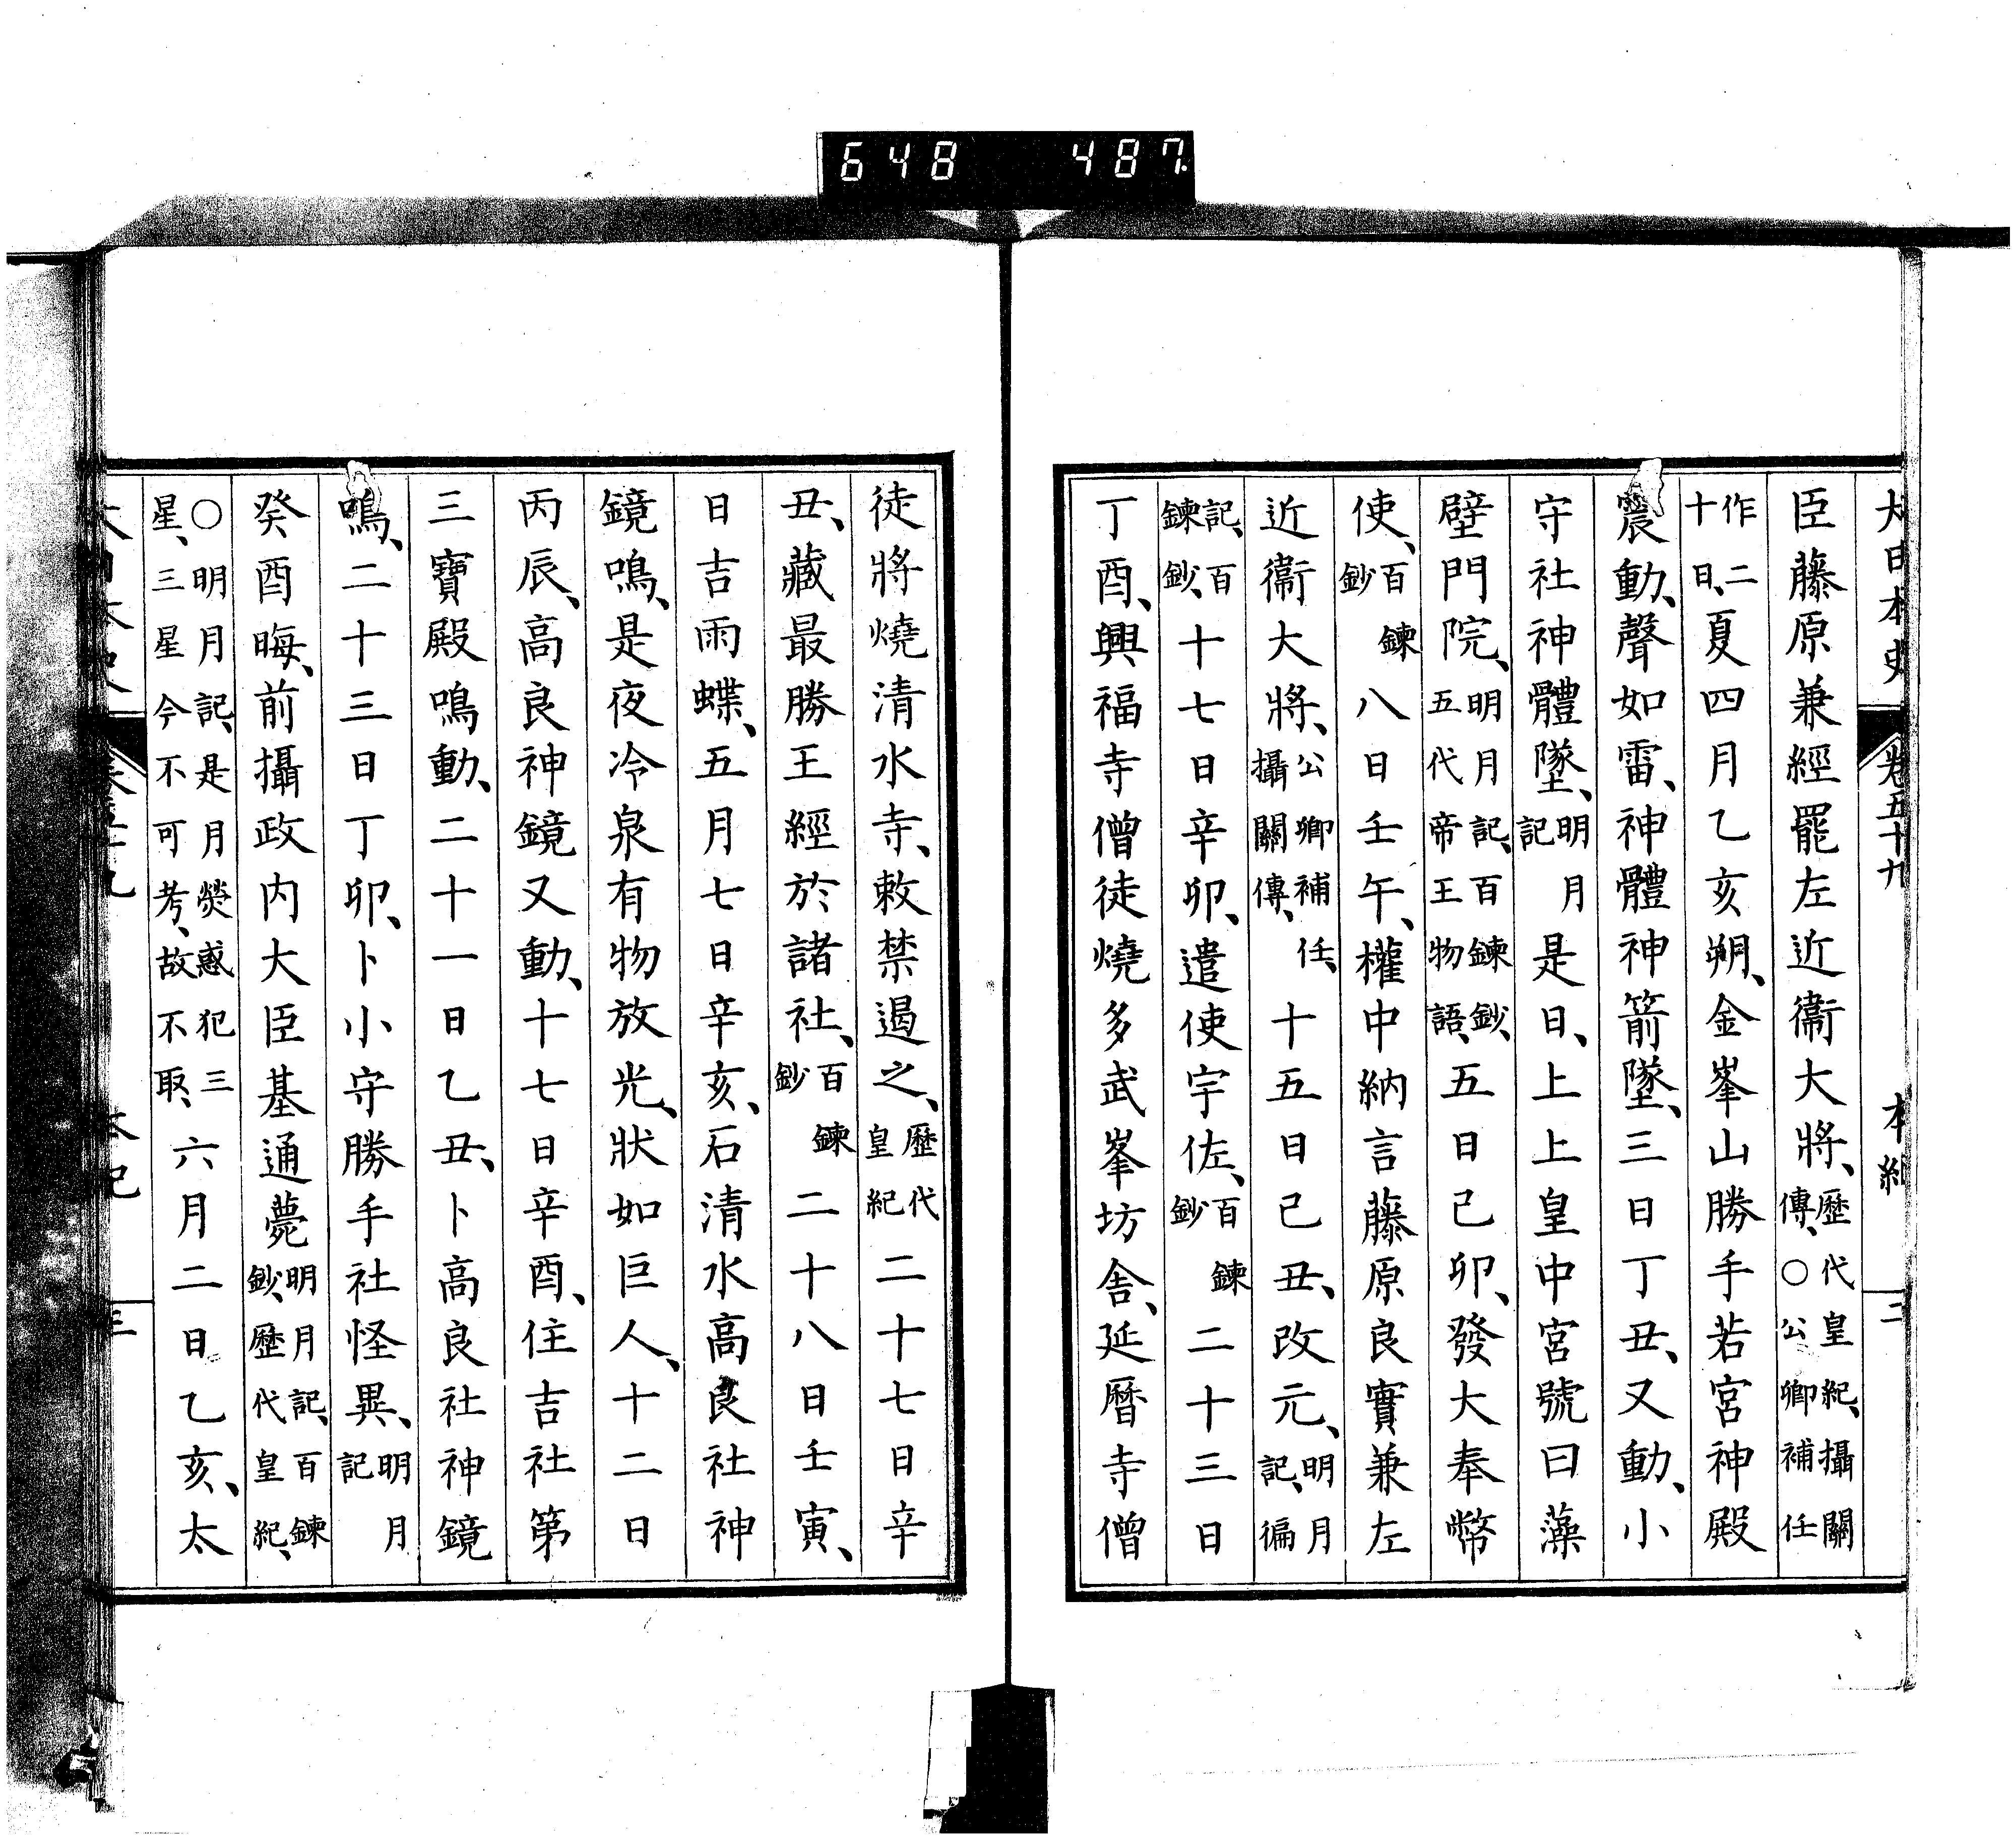 648 487
大日本史 卷五十九 本紀 二
臣藤原兼經罷左近衞大將、歷代皇紀、攝關傳、〇公卿補任
作二十日、夏四月乙亥朔、金峯山勝手若宮神殿
震動、聲如雷、神體神箭墜、三日丁丑、又動、小
守社神體墜、明月記是日、上上皇中宮號曰藻
壁門院、明月記、百鍊鈔、五代帝王物語、五日己卯、發大奉幣
使、百鍊鈔八日壬午、權中納言藤原良實兼左
近衞大將、公卿補任、攝關傳、十五日己丑、改元、明月記、徧
記、百鍊鈔、十七日辛卯、遣使宇佐、百鍊鈔二十三日
丁酉、興福寺僧徒燒多武峯坊舍、延曆寺僧
徒將燒清水寺、敕禁遏之、歷代皇紀二十七日辛
丑、藏最勝王經於諸社、百鍊鈔二十八日壬寅、
日吉雨蝶、五月七日辛亥、石清水高良社神
鏡鳴、是夜冷泉有物放光、狀如巨人、十二日
丙辰、高良神鏡又動、十七日辛酉、住吉社第
三寶殿鳴動、二十一日乙丑、卜高良社神鏡
鳴、二十三日丁卯、卜小守勝手社怪異、明月記
癸酉晦、前攝政内大臣基通薨明月記、百鍊鈔、歷代皇紀、
〇明月記、是月熒惑犯三星、三星今不可考、故不取、六月二日乙亥、太
大日本史 卷五十九 本紀 三